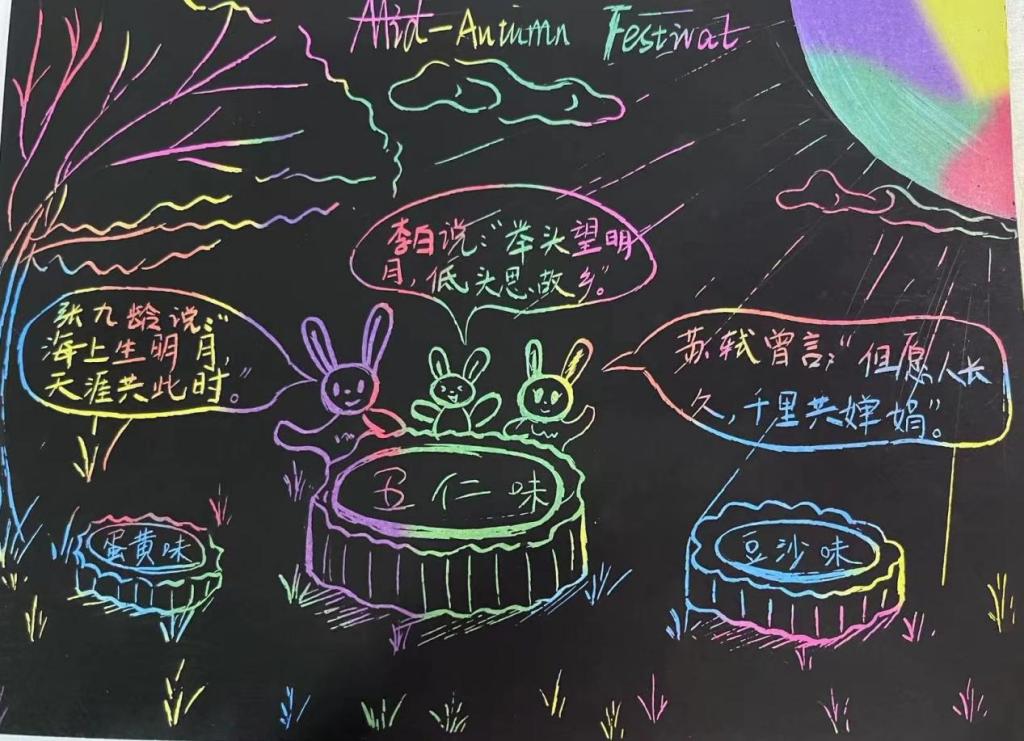 Mid-Autumn Festival
李白说:“举头望明
月,低头思故乡。”
张九龄说:“
海上生明月,
天涯共此时”。
苏轼曾言:“但愿人长
久,千里共婵娟”。
五仁味
蛋黄味
豆沙味